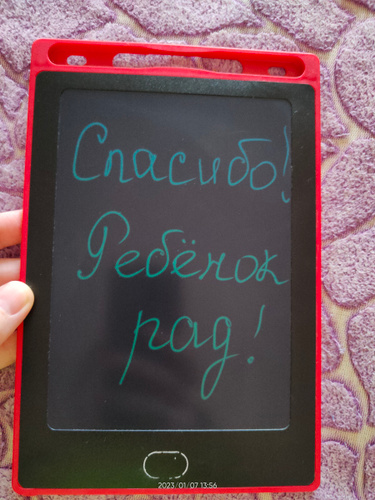 Спасибо!
Ребёнок
рад!
2023/01/07 13:56